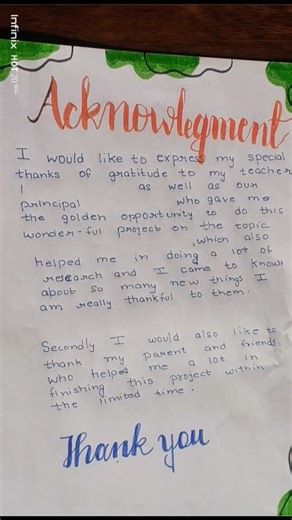 Infinix HOT 20
Acknowlegment
I would like to express my special
thanks of gratitude to my teacher
as well as our
principal who gave me
the golden opportunity to do this
wonder-ful project on the topic
, which also
helped me in doing a lot of
research and I came to know
about so many new things I
am really thankful to them.
Secondly I would also like to
thank my parent and friends
who helped me a lot in
finishing this project within
the limited time.
Thank you